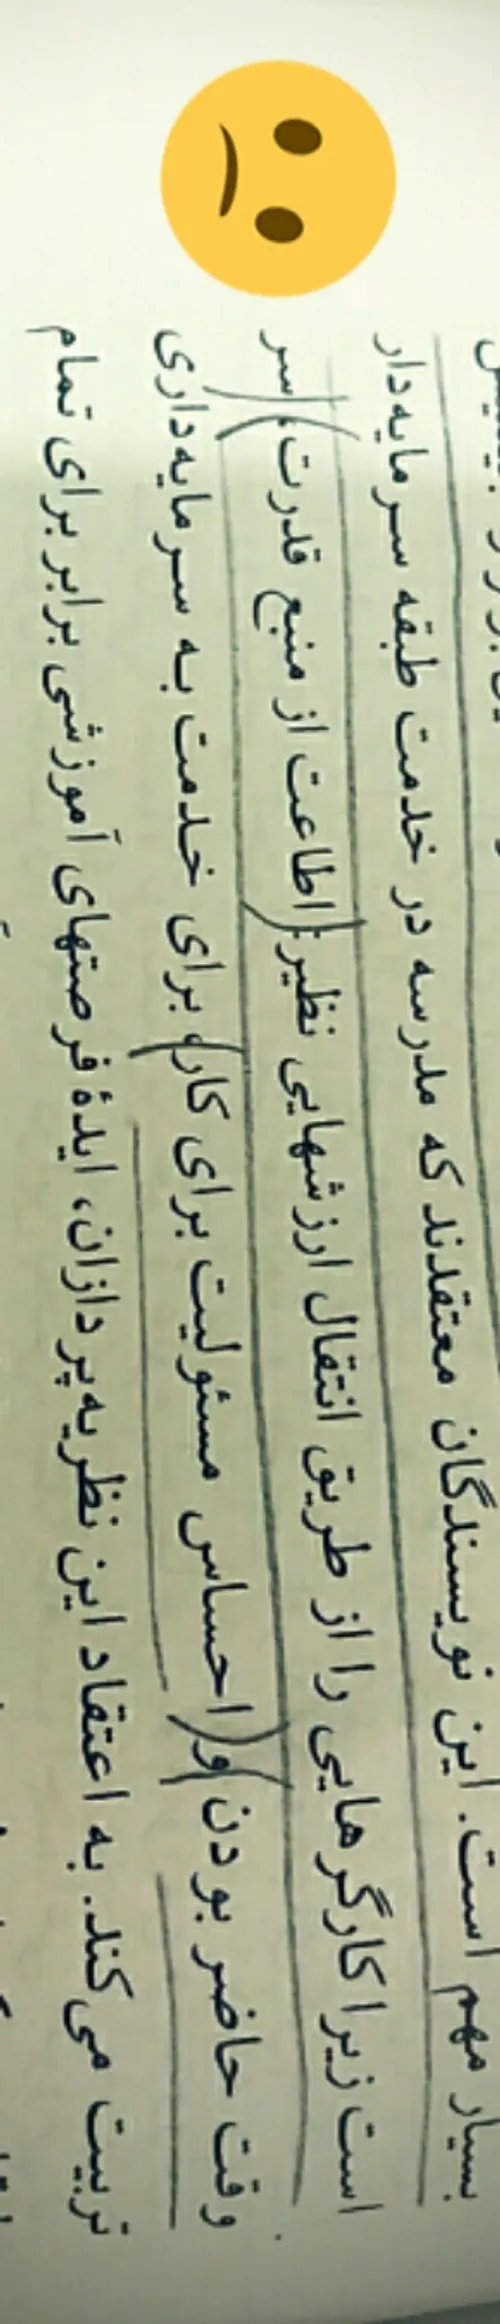 بسیار مهم است. این نویسندگان معتقدند که مدرسه در خدمت طبقه سرمایه‌دار
است زیرا کارگرهایی را از طریق انتقال ارزشهایی نظیر: اطاعت از منبع قدرت، سر
وقت حاضر بودن و احساس مسئولیت برای کار، برای خدمت به سرمایه‌داری
تربیت می‌کند. به اعتقاد این نظریه‌پردازان، ایدهٔ فرصتهای آموزشی برابر برای تمام